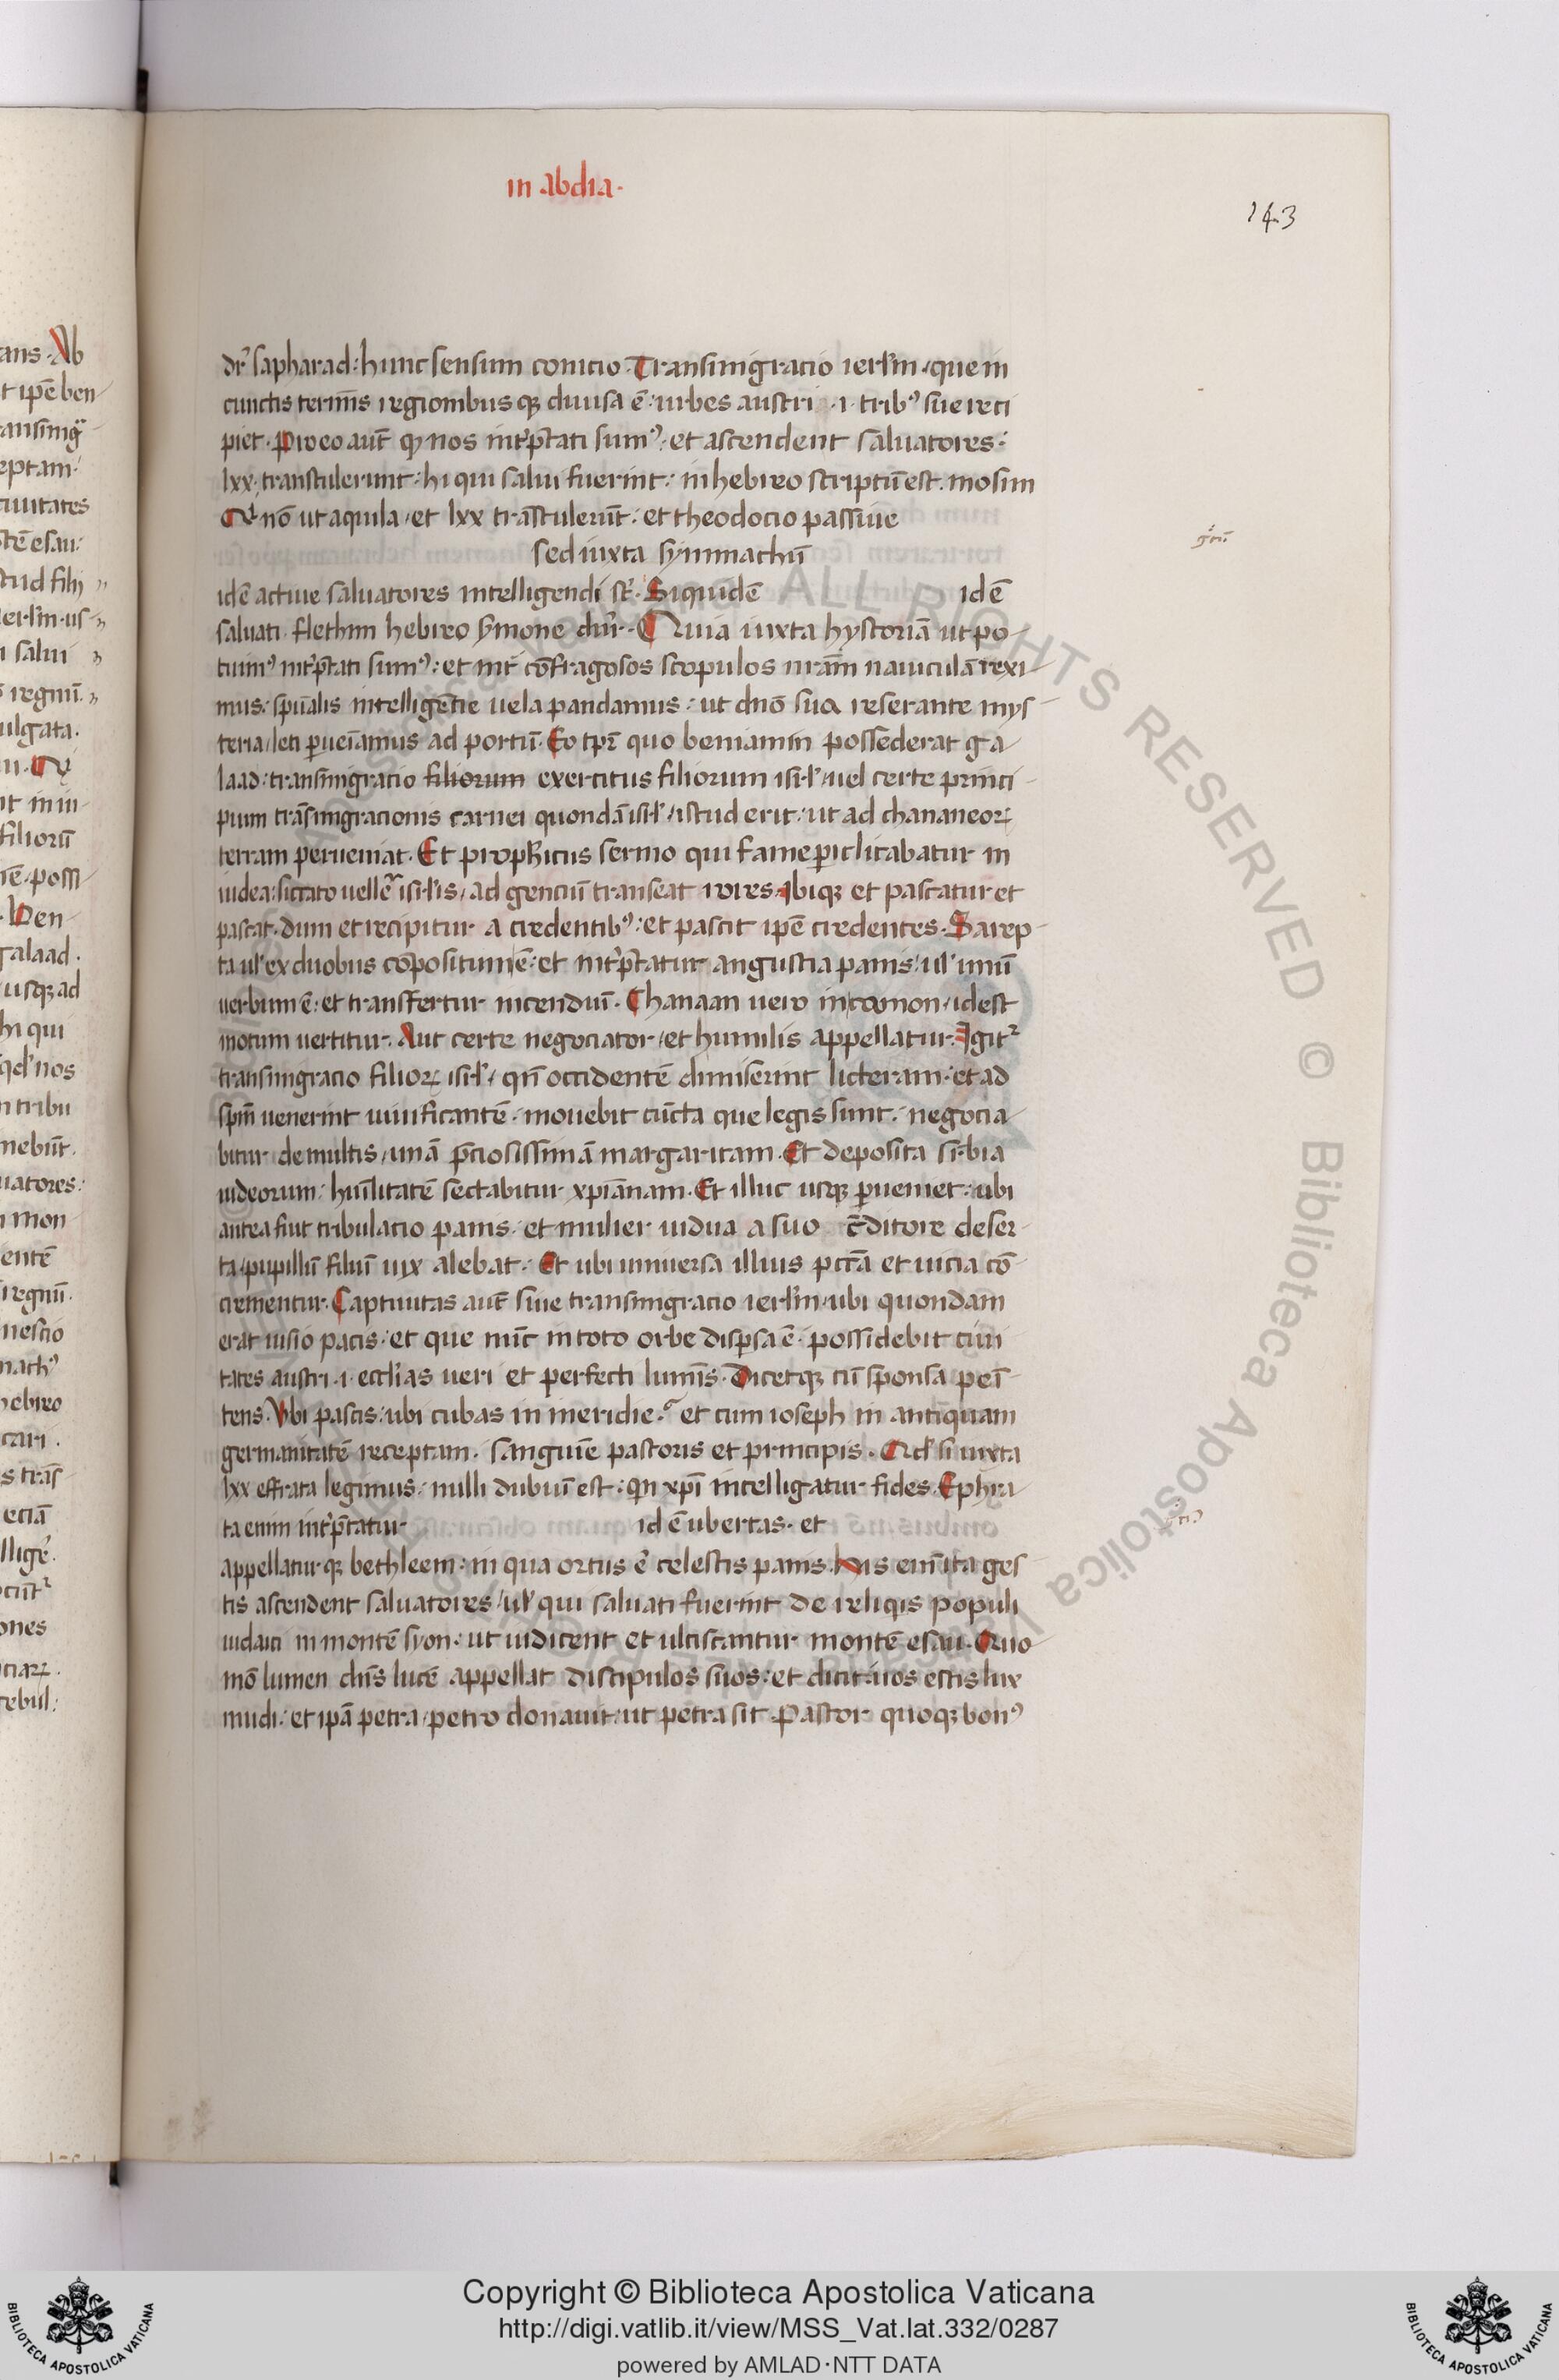 in abdia.
143
dr̃ sapharad: hunc sensum conicio. Transmigracio ierl̃m, que in
cunctis term̃is regionibus qꝫ diuisa ẽ: urbes austri .i. tribꝰ sue reci
piet. Pro eo aut̃ qꝫ nos int̃p̃tati sumꝰ: et ascendent saluatores:
lxx. transtulerunt: hi qui salui fuerint: in hebreo scriptũ est. mosim
nõ ut aquila, et lxx trãstulerũt: et theodocio passiue
sed iuxta symmachũ
idẽ actiue saluatores intelligendi st̃. Siquidẽ idẽ
saluati. flethim hebreo s̃mone dñr. Quia iuxta hystoriã ut po
tuimꝰ int̃p̃tati sumꝰ: et int̃ cõfragosos scopulos nr̃am nauiculã rexi
mus: sp̃ualis intelligẽtie uela pandamus: ut dnõ sua reserante mys
teria, leti ꝑueĩamus ad portũ. Eo tp̃r quo beniamin possederat ga
laad: transmigracio filiorum exercitus filiorum isrl̃, uel certe princi
pium trãsmigracionis carnei quondã isrl̃, istud erit: ut ad chananeoꝝ
terram perueniat. Et propheticus sermo qui fame ꝑiclitabatur in
iudea: siccato uellẽ isrl̃is, ad genciũ transeat rores. Ibiqꝫ et pascatur et
pascat. dum et recipitur a credentibꝰ: et pascit ip̃e credentes. Sarep
ta ul̃ ex duobus cõpositum ẽ: et int̃p̃tatur angustia panis: ul̃ unũ
uerbum ẽ: et transfertur incendiũ. Chanaan uero in comon, id est
motum uertitur. Aut certe negociator, et humilis appellatur. Igitᷣ
transmigracio filioꝝ isrl̃, qñ occidentẽ dimiserint licteram: et ad
sp̃m uenerint uiuificantẽ: mouebit cũcta que legis sunt: negocia
bitur de multis, unã p̃ciosissimã margaritam. Et deposita sr̃bia
iudeorum: hũilitatẽ sectabitur xp̃ianam. Et illuc usqꝫ ꝑueniet: ubi
antea fuit tribulacio panis: et mulier uidua a suo c̃ditore deser
ta, pupillũ filiũ uix alebat. Et ubi uniuersa illius pctã et uicia cõ
crementur. Captiuitas aut̃ siue transmigracio ierl̃m, ubi quondam
erat uisio pacis: et que nũc in toto orbe disꝑsa ẽ. possidebit ciui
tates austri .i. eccl̃ias ueri et perfecti lumĩs. Dicetqꝫ cũ sponsa peñ
tens. Vbi pascis: ubi cubas in meridie? et cum ioseph in antiquam
germanitatẽ receptam. sanguĩe pastoris et principis. Qd̃ si iuxta
lxx effrata legimus: nulli dubiũ est: qn xp̃i intelligatur fides. Ephra
ta enim int̃p̃tatur id ẽ ubertas. et
appellatur qꝫ bethleem: in qua ortus ẽ celestis panis. His enĩ ita ges
tis ascendent saluatores, ul̃ qui saluati fuerint de reliqis populi
iudaici in montẽ syon: ut iudicent et ulciscantur montẽ esau. Quo
mõ lumen dñs lucẽ appellat discipulos suos: et dicit: uos estis lux
mũdi: et ip̃a petra, petro donauit: ut petra sit. Pastor quoqꝫ bonꝰ
Copyright © Biblioteca Apostolica Vaticana
http://digi.vatlib.it/view/MSS_Vat.lat.332/0287
powered by AMLAD·NTT DATA